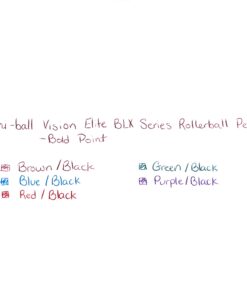 -ball Vision Elite BLX Series Rollerball
-Bold Point
Brown/Black
Green/Black
Blue/Black
Purple/Black
Red/Black